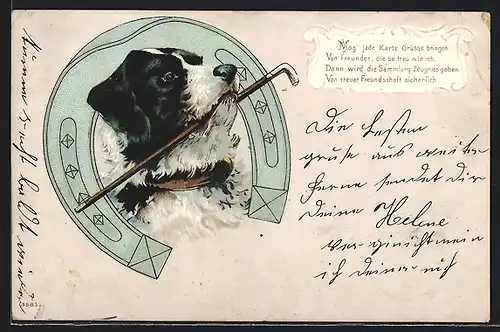 Mög' jede Karte Grüsse bringen
Von Freunden, die so treu wie ich,
Dann wird die Sammlung Zeugniss geben
Von treuer Freundschaft sicherlich
Die besten
grüse aus weiter
Ferne sendet dir
deine Helene
vergiss nicht mein
ich deiner nich